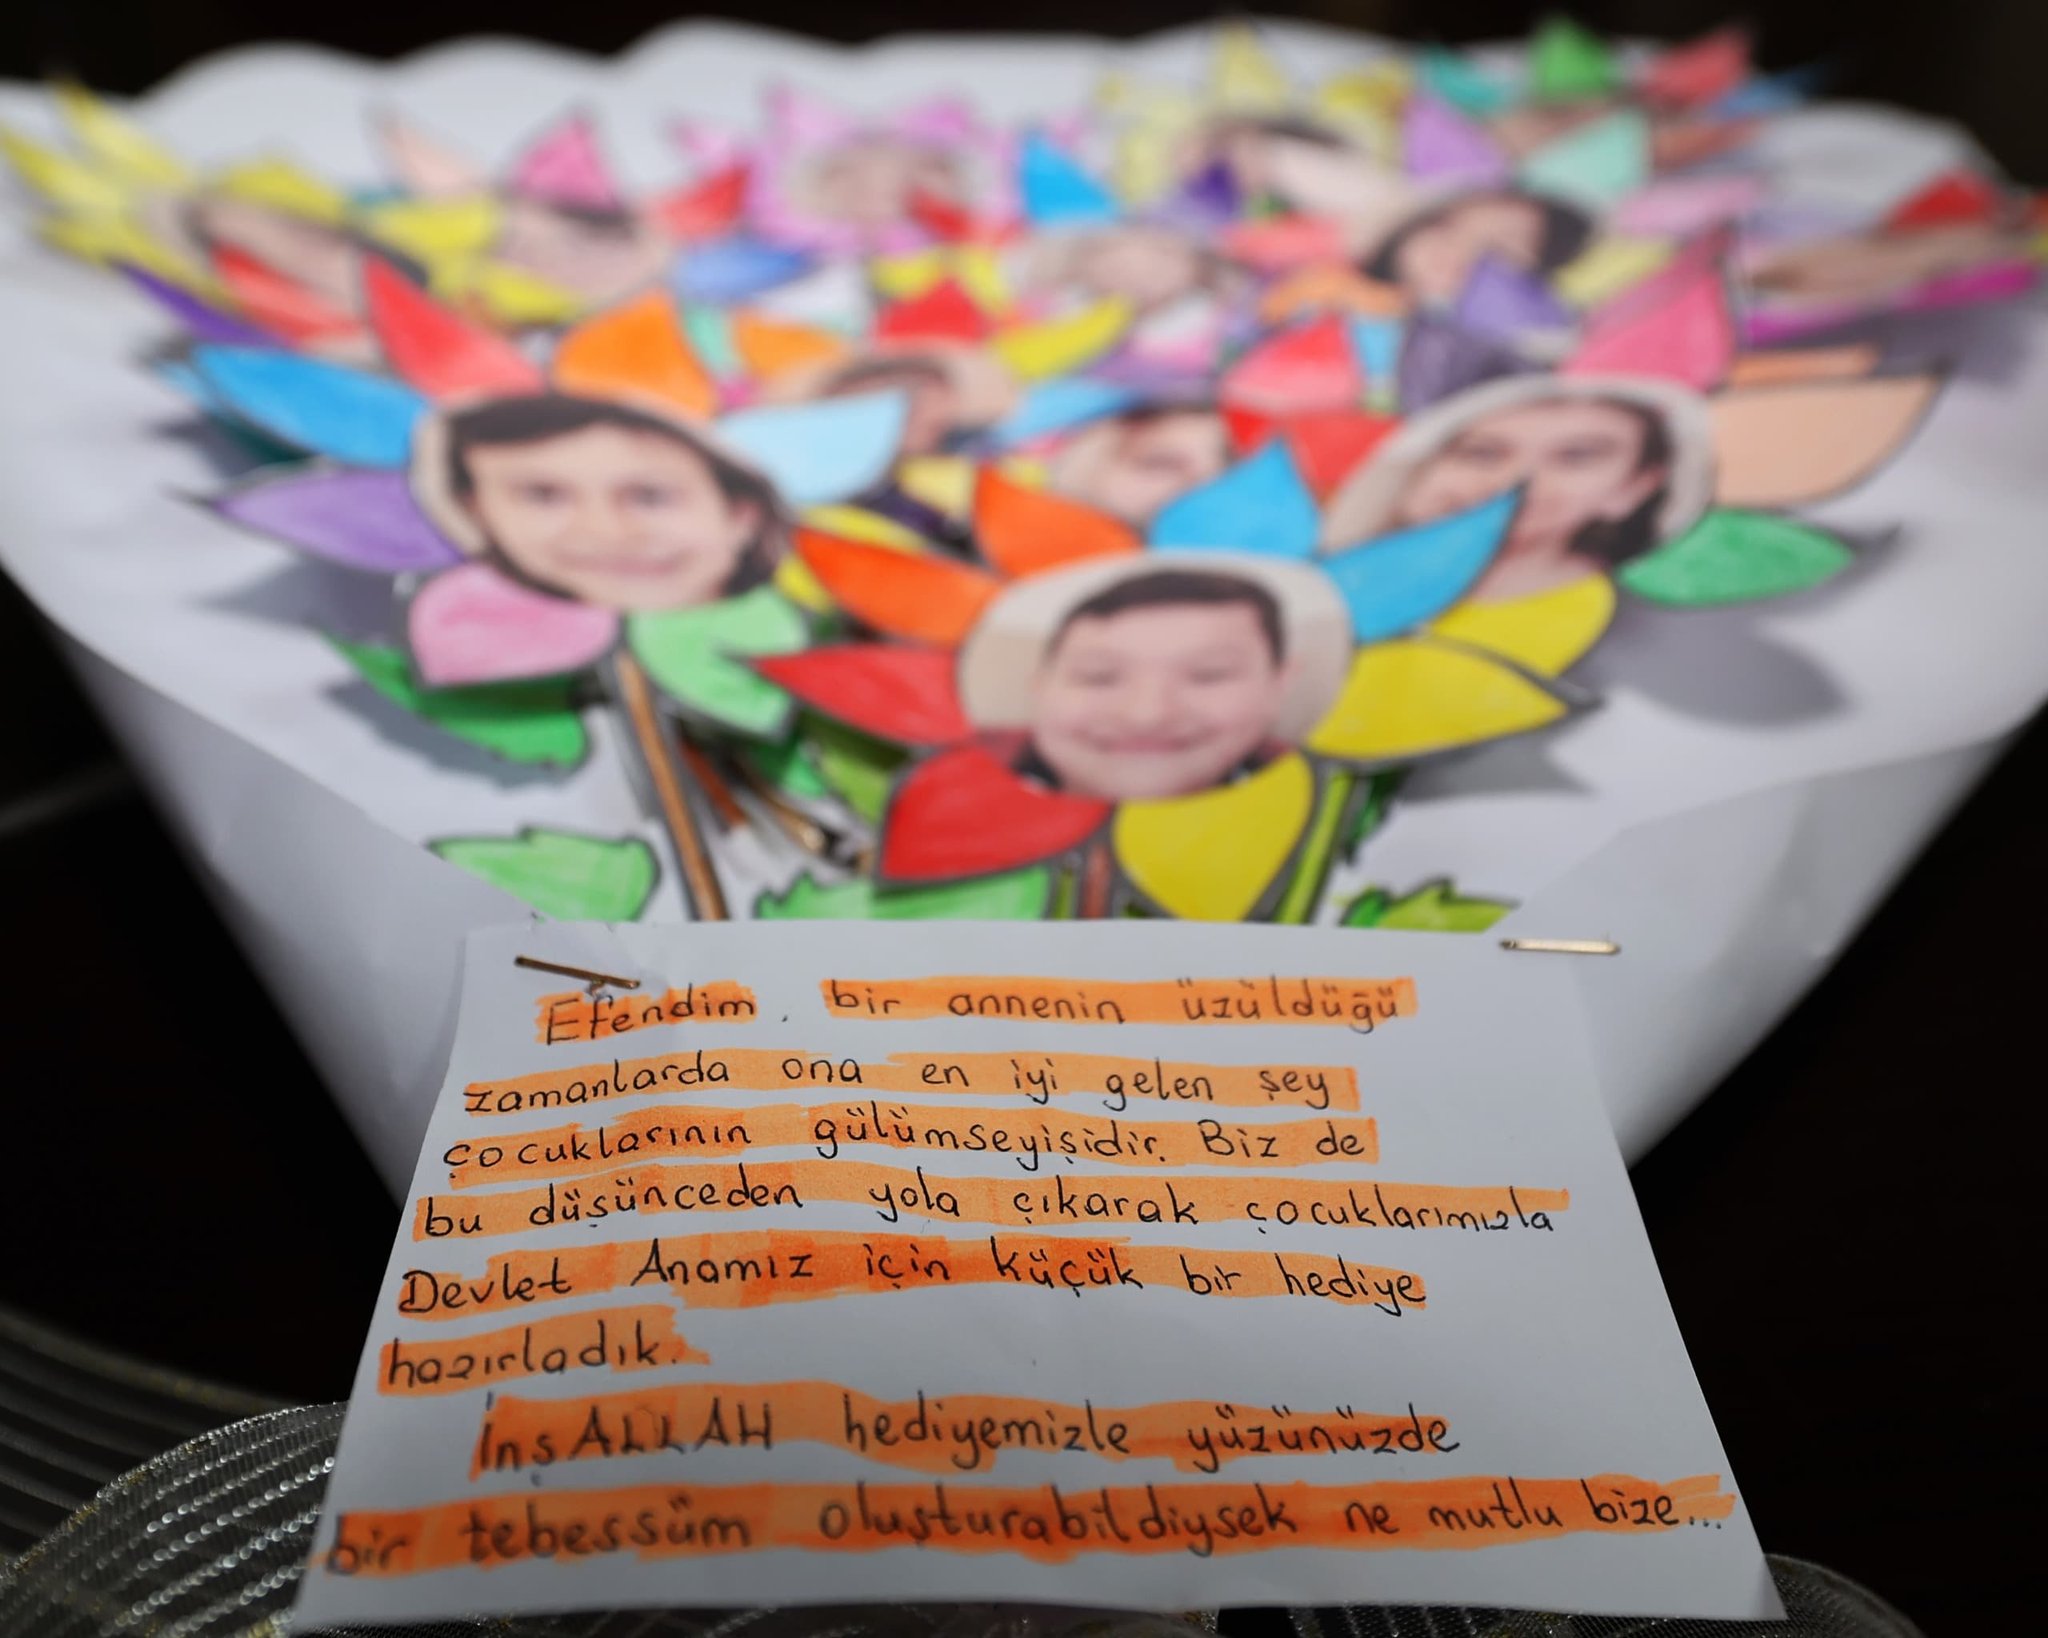 Efendim, bir annenin üzüldüğü
zamanlarda ona en iyi gelen şey
çocuklarının gülümseyişidir. Biz de
bu düşünceden yola çıkarak çocuklarımızla
Devlet Anamız için küçük bir hediye
hazırladık.
İnşALLAH hediyemizle yüzünüzde
bir tebessüm oluşturabildiysek ne mutlu bize...